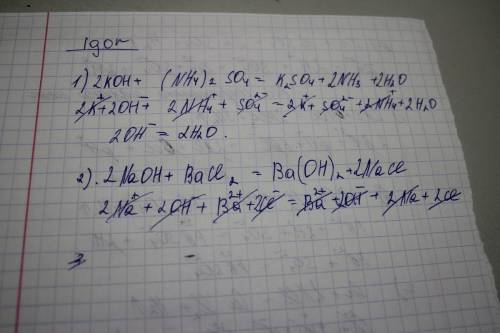 Igor
1) 2KOH + (NH4)2 SO4 = K2SO4 + 2NH3 + 2H2O
2K⁺ + 2OH⁻ + 2NH4⁺ + SO4²⁻ = 2K⁺ + SO4²⁻ + 2NH4⁺ + 2H2O
2OH⁻ = 2H2O.
2). 2NaOH + BaCl2 = Ba(OH)2 + 2NaCl
2Na⁺ + 2OH⁻ + Ba²⁺ + 2Cl⁻ = Ba²⁺ + 2OH⁻ + 2Na⁺ + 2Cl